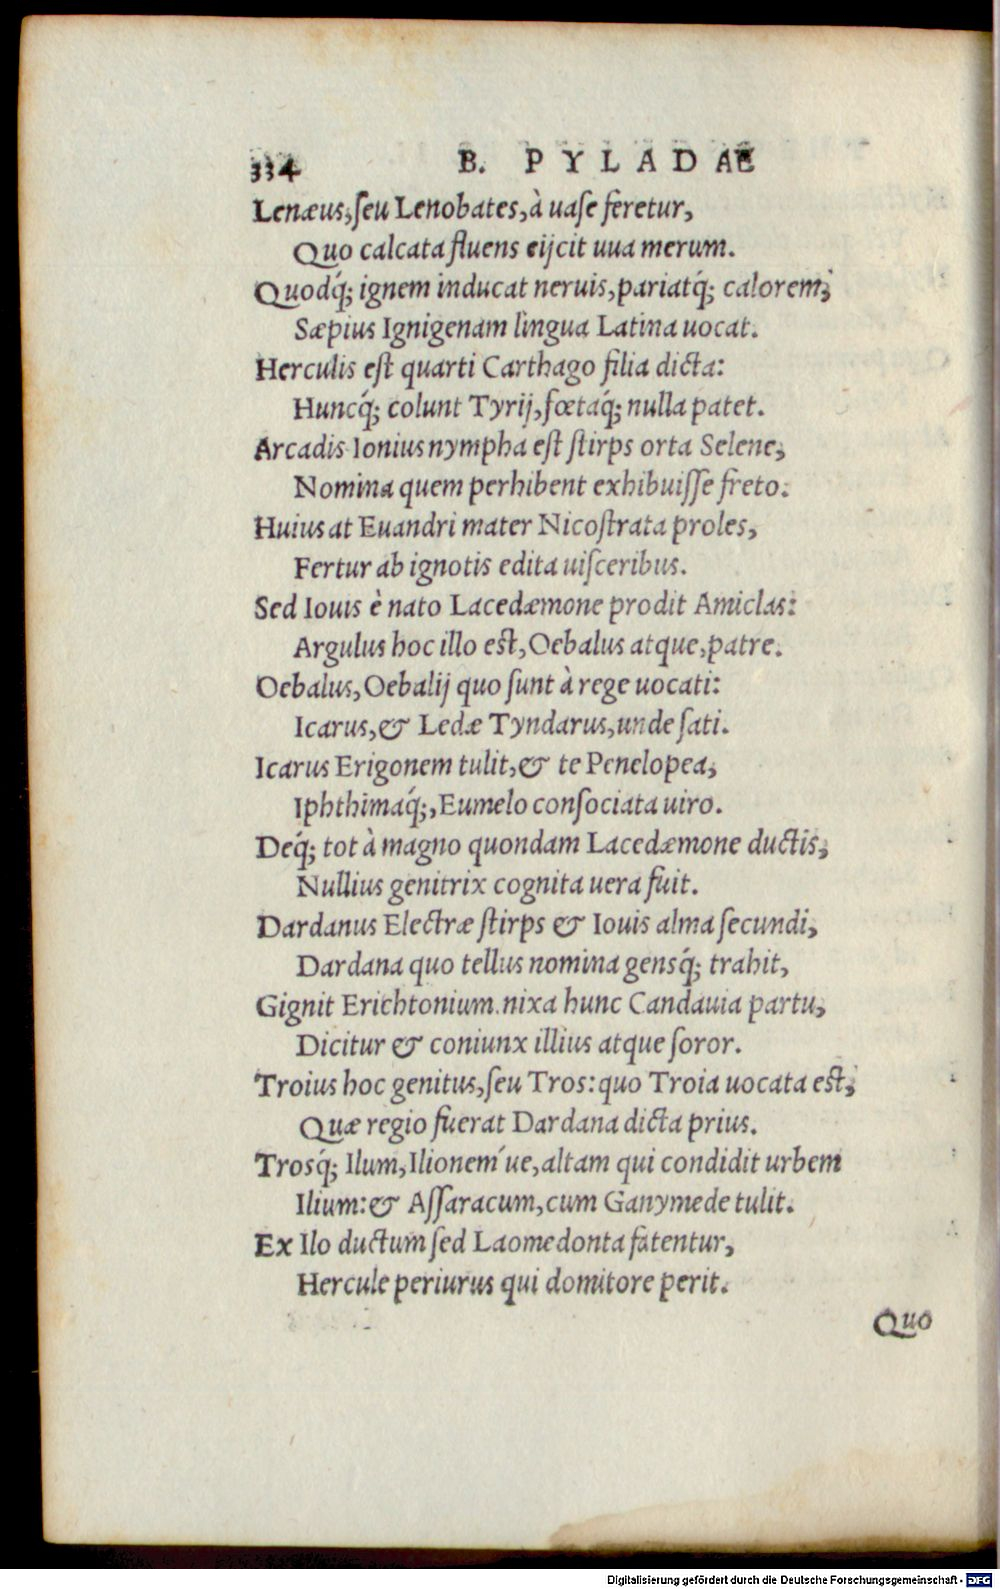 334 B. PYLADAE
Lenæus, seu Lenobates, à uase feretur,
Quo calcata fluens eijcit uua merum.
Quodq́; ignem inducat neruis, pariatq́; calorem,
Sæpius Ignigenam lingua Latina uocat.
Herculis est quarti Carthago filia dicta:
Huncq́; colunt Tyrij, fœtaq́; nulla patet.
Arcadis Ionius nympha est stirps orta Selene,
Nomina quem perhibent exhibuisse freto.
Huius at Euandri mater Nicostrata proles,
Fertur ab ignotis edita uisceribus.
Sed Iouis è nato Lacedæmone prodit Amiclas:
Argulus hoc illo est, Oebalus atque, patre.
Oebalus, Oebalij quo sunt à rege uocati:
Icarus, & Ledæ Tyndarus, unde sati.
Icarus Erigonem tulit, & te Penelopea,
Iphthimaq́;, Eumelo consociata uiro.
Deq́; tot à magno quondam Lacedæmone ductis,
Nullius genitrix cognita uera fuit.
Dardanus Electræ stirps & Iouis alma secundi,
Dardana quo tellus nomina gensq́; trahit,
Gignit Erichtonium. nixa hunc Candauia partu,
Dicitur & coniunx illius atque soror.
Troius hoc genitus, seu Tros: quo Troia uocata est,
Quæ regio fuerat Dardana dicta prius.
Trosq́; Ilum, Ilionem´ue, altam qui condidit urbem
Ilium: & Assaracum, cum Ganymede tulit.
Ex Ilo ductum sed Laomedonta fatentur,
Hercule periurus qui domitore perit.
Quo
Digitalisierung gefördert durch die Deutsche Forschungsgemeinschaft - DFG